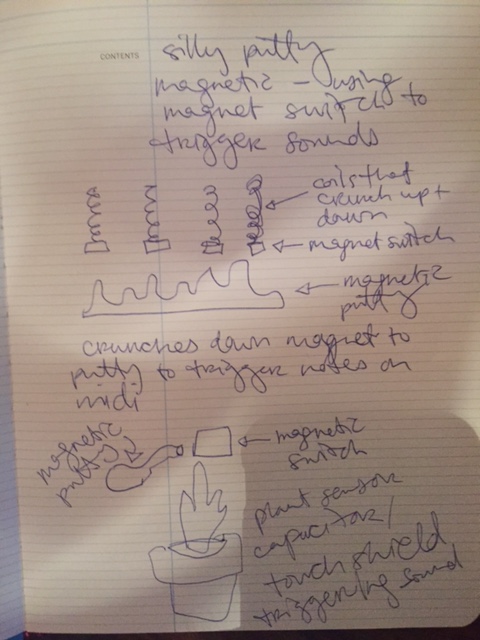 CONTENTS
silly putty
magnetic - using
magnet switch to
trigger sounds
coils that
crunch up +
down
magnet switch
magnetic
putty
crunches down magnet to
putty to trigger notes on
midi
magnetic
putty
magnetic
switch
plant sensor
capacitor/
touch shield
triggering sound